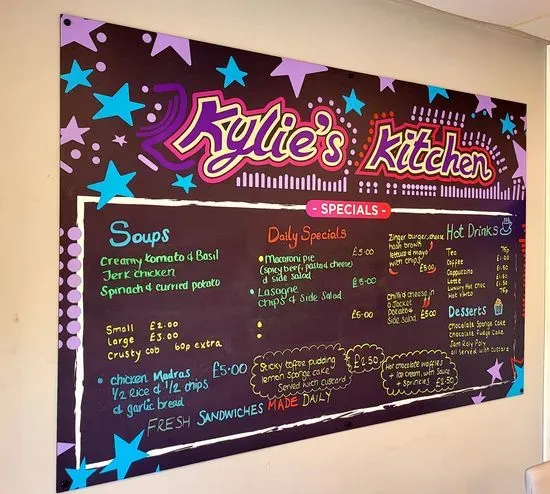 Kylie's Kitchen
- SPECIALS -
Soups
Creamy tomato & Basil
Jerk chicken
Spinach & curried potato
Small £2.00
Large £3.00
crusty cob 60p extra
• chicken Madras £5.00
1/2 rice & 1/2 chips
& garlic bread
Daily Specials
• Macaroni pie £5.00
(spicy beef, pasta & cheese)
& side salad
• Lasagne £5.00
chips & Side Salad
£5.00
Zinger burger, cheese
hash brown
lettuce & mayo
with chips £5.00
chilli & cheese in
a Jacket
Potato &
Side salad £5.00
Sticky toffee pudding
lemon sponge cake
Served with custard
£2.50
Hot chocolate waffles
+ ice cream with sauce
+ sprinkles £2.50
Hot Drinks
Tea 75p
Coffee
Cappuccino
Latte
Luxury Hot choc
Hot vimto
Desserts
Chocolate Sponge Cake
Chocolate Fudge Cake
Jam Roly Poly
All Served with custard
FRESH SANDWICHES MADE DAILY